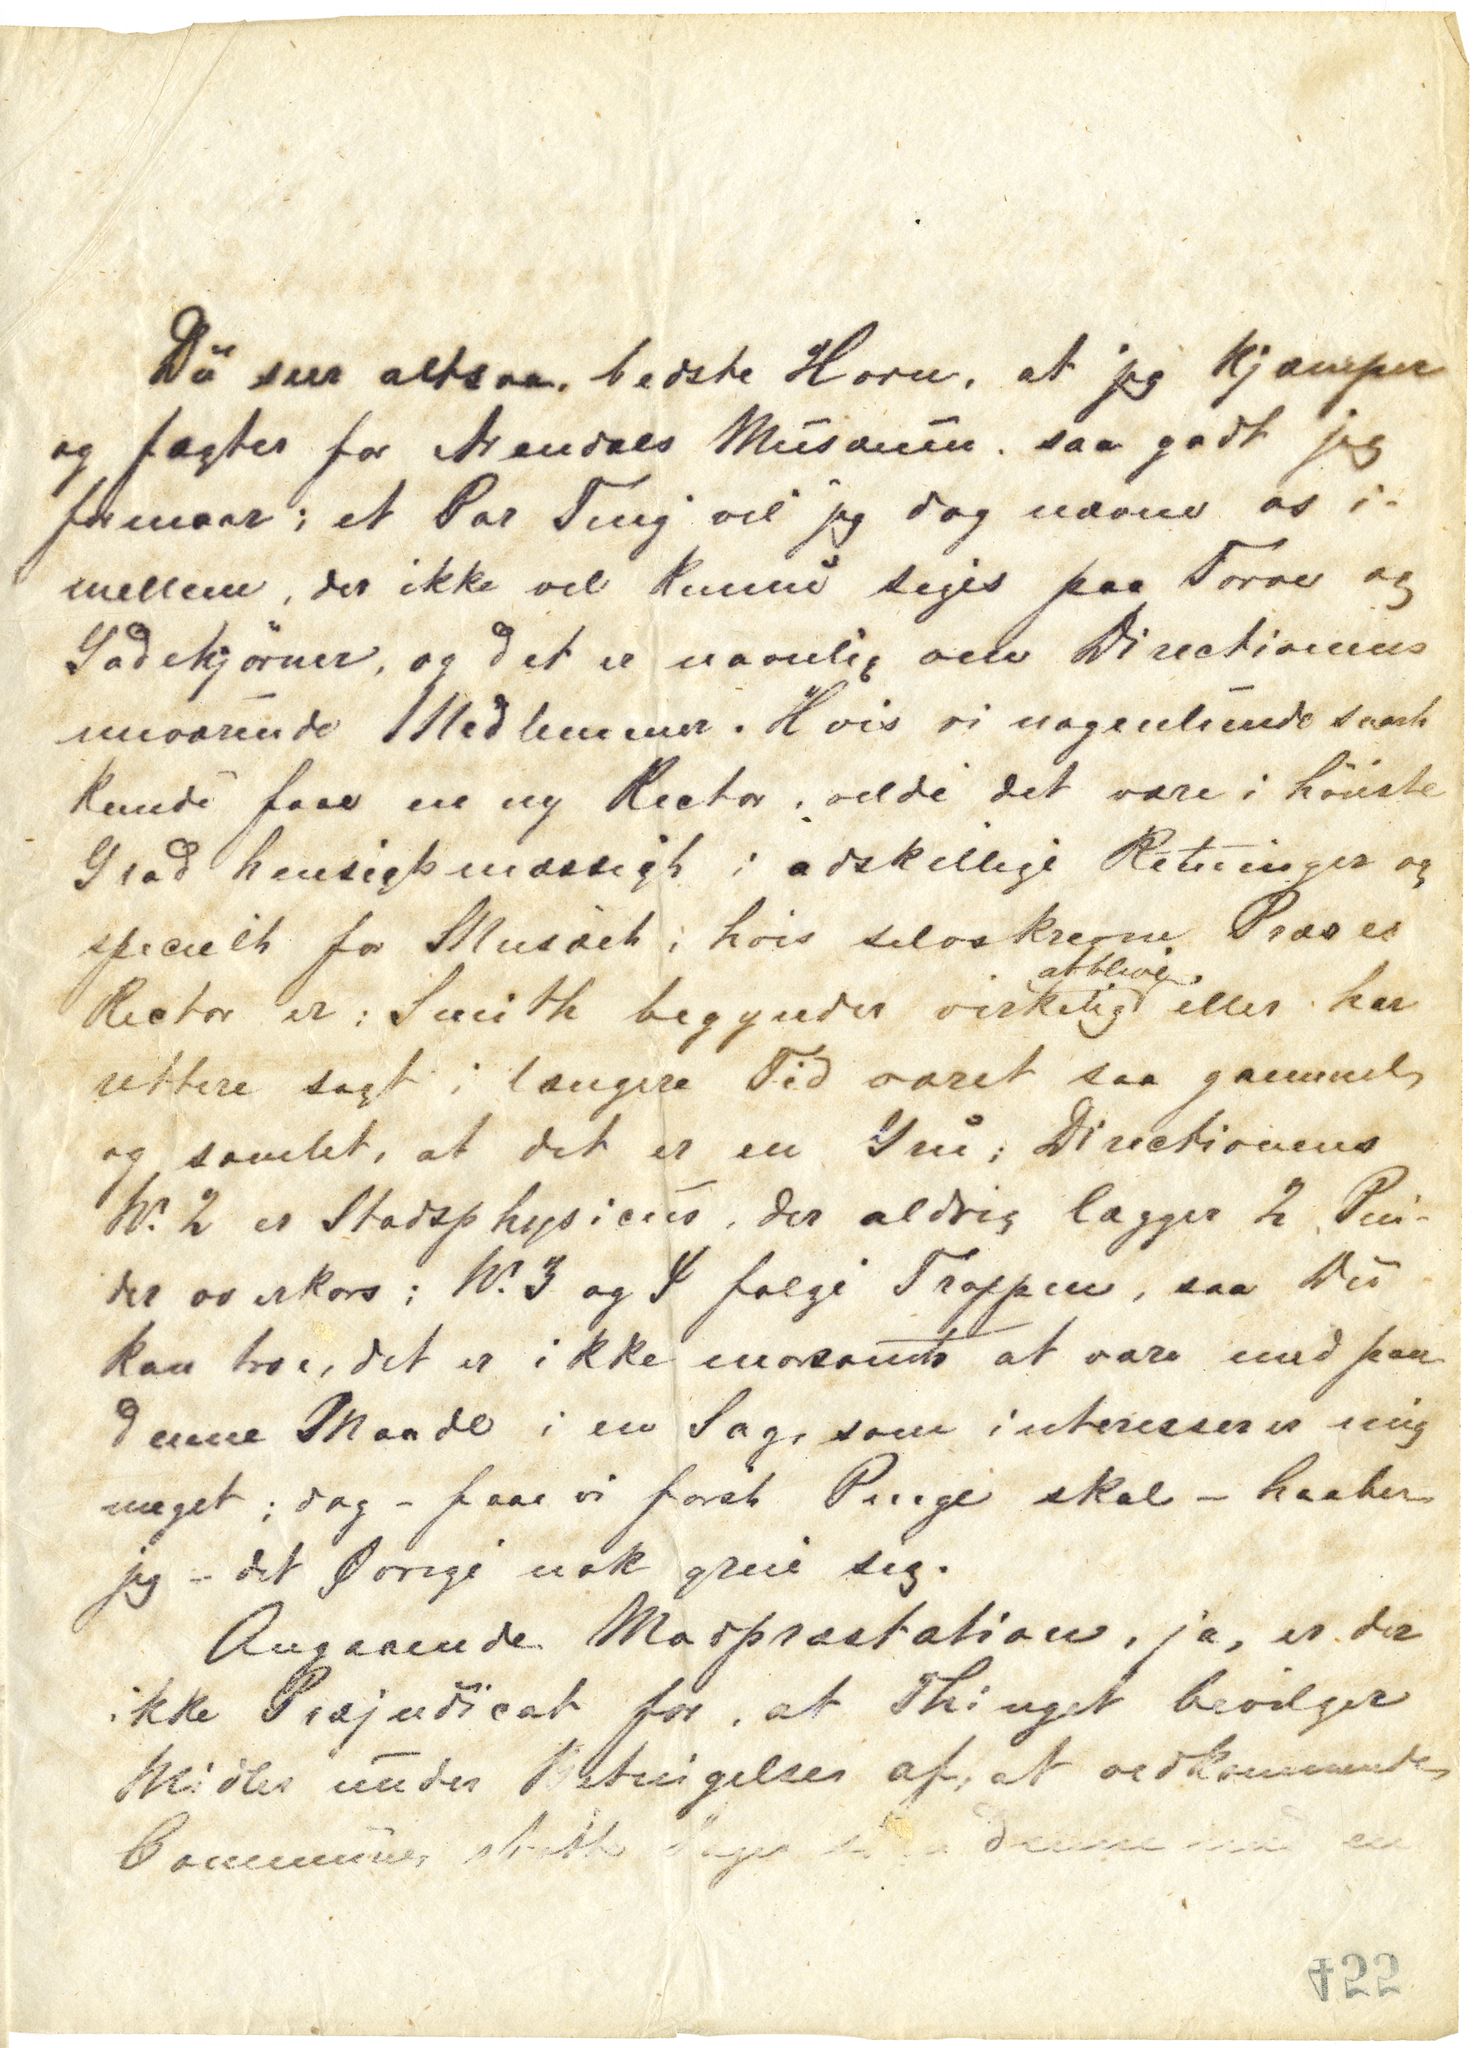 Du seer altsaa, bedste Horn, at jeg kjæmper
og fægter for Arendals Musæum, saa godt jeg
formaar; et Par Ting vil jeg dog nævne os i-
mellem, der ikke vel kunne siges paa Torve og
Gadehjörner, og det er navnlig om Directionens
nuværende Medlemmer. Hvis vi nogenlunde snart
kunde faae en ny Rector, vilde det være i höieste
Grad hensigtsmæssigt i adskillige Retninger og
specielt for Musæet, hvis selvskrevne Præses
Rector er; Smith begynder virkelig at blive, eller har
rettere sagt i længere Tid været saa gammel,
og somlet, at det er en Gru; Directionens
N. 2 er Stadsphysicus, der aldrig lægger 2 Pin-
der overkors; N. 3 og 4 følge Troppen, saa Du
kan troe, det er ikke morsomt at være med paa
denne Maade i en Sag, som interesserer mig
meget; dog - faae vi först Penge skal - haaber
jeg - det Øvrige nok greie sig.
Angaaende Modpræstation, ja, er der
ikke Præjudicat for, at Thinget bevilger
Midler under Betingelser af, at vedkommende
Commune, støtte Sagen denne med en
422